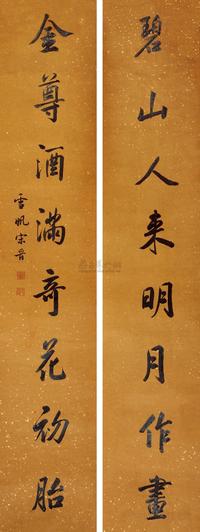 碧山人来明月作畫
金尊酒滿奇花初胎
雪帆宋晉